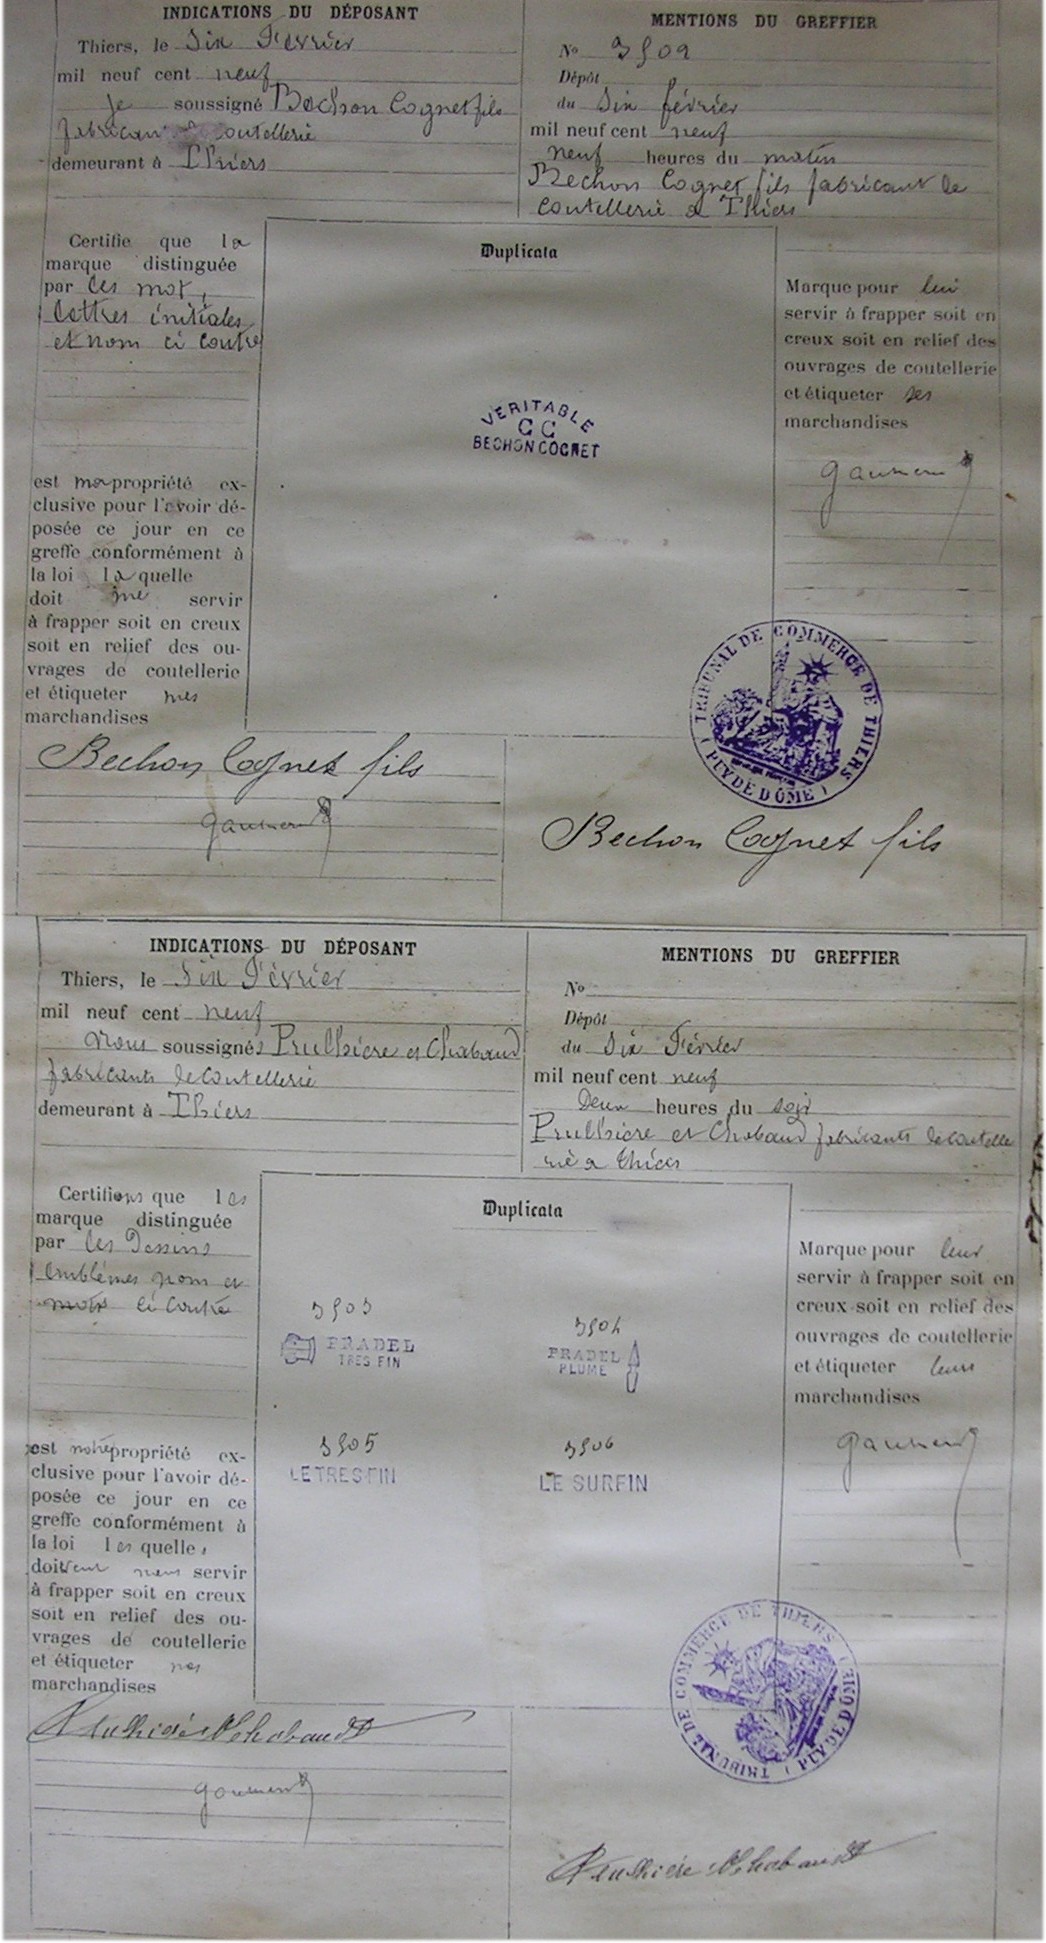 INDICATIONS DU DÉPOSANT
Thiers, le Six Février
mil neuf cent neuf
je soussigné Bechon Cognet fils
fabricant de coutellerie
demeurant à Thiers
MENTIONS DU GREFFIER
No 3502
Dépôt
du Six février
mil neuf cent neuf
neuf heures du matin
Bechon Cognet fils fabricant de
coutellerie a Thiers
Certifie que la
marque distinguée
par les mot,
lettres initiales
et nom ci contre
est ma propriété ex-
clusive pour l'avoir dé-
posée ce jour en ce
greffe conformément à
la loi laquelle
doit me servir
à frapper soit en creux
soit en relief des ou-
vrages de coutellerie
et étiqueter mes
marchandises
Duplicata
VERITABLE
C C
BECHON COGNET
Marque pour lui
servir à frapper soit en
creux soit en relief des
ouvrages de coutellerie
et étiqueter ses
marchandises
TRIBUNAL DE COMMERCE DE THIERS
( PUY DE DÔME )
Bechon Cognet fils
Bechon Cognet fils
INDICATIONS DU DÉPOSANT
Thiers, le Six Février
mil neuf cent neuf
Nous soussignés Prulhière et Chabaud
fabricants de coutellerie
demeurant à Thiers
MENTIONS DU GREFFIER
No
Dépôt
du Six Février
mil neuf cent neuf
Deux heures du soir
Prulhière et Chabaud fabricants de coutelle
rie a thiers
Certifions que les
marque distinguée
par les Dessins
emblèmes nom et
mots ci contre
est notre propriété ex-
clusive pour l'avoir dé-
posée ce jour en ce
greffe conformément à
la loi lesquelles
doivent nous servir
à frapper soit en creux
soit en relief des ou-
vrages de coutellerie
et étiqueter nos
marchandises
Duplicata
3503
PRADEL
TRES FIN
3504
PRADEL
PLUME
3505
LE TRES FIN
3506
LE SURFIN
Marque pour leur
servir à frapper soit en
creux soit en relief des
ouvrages de coutellerie
et étiqueter leurs
marchandises
TRIBUNAL DE COMMERCE DE THIERS
( PUY DE DÔME )
Prulhière & Chabaud
Prulhière & Chabaud